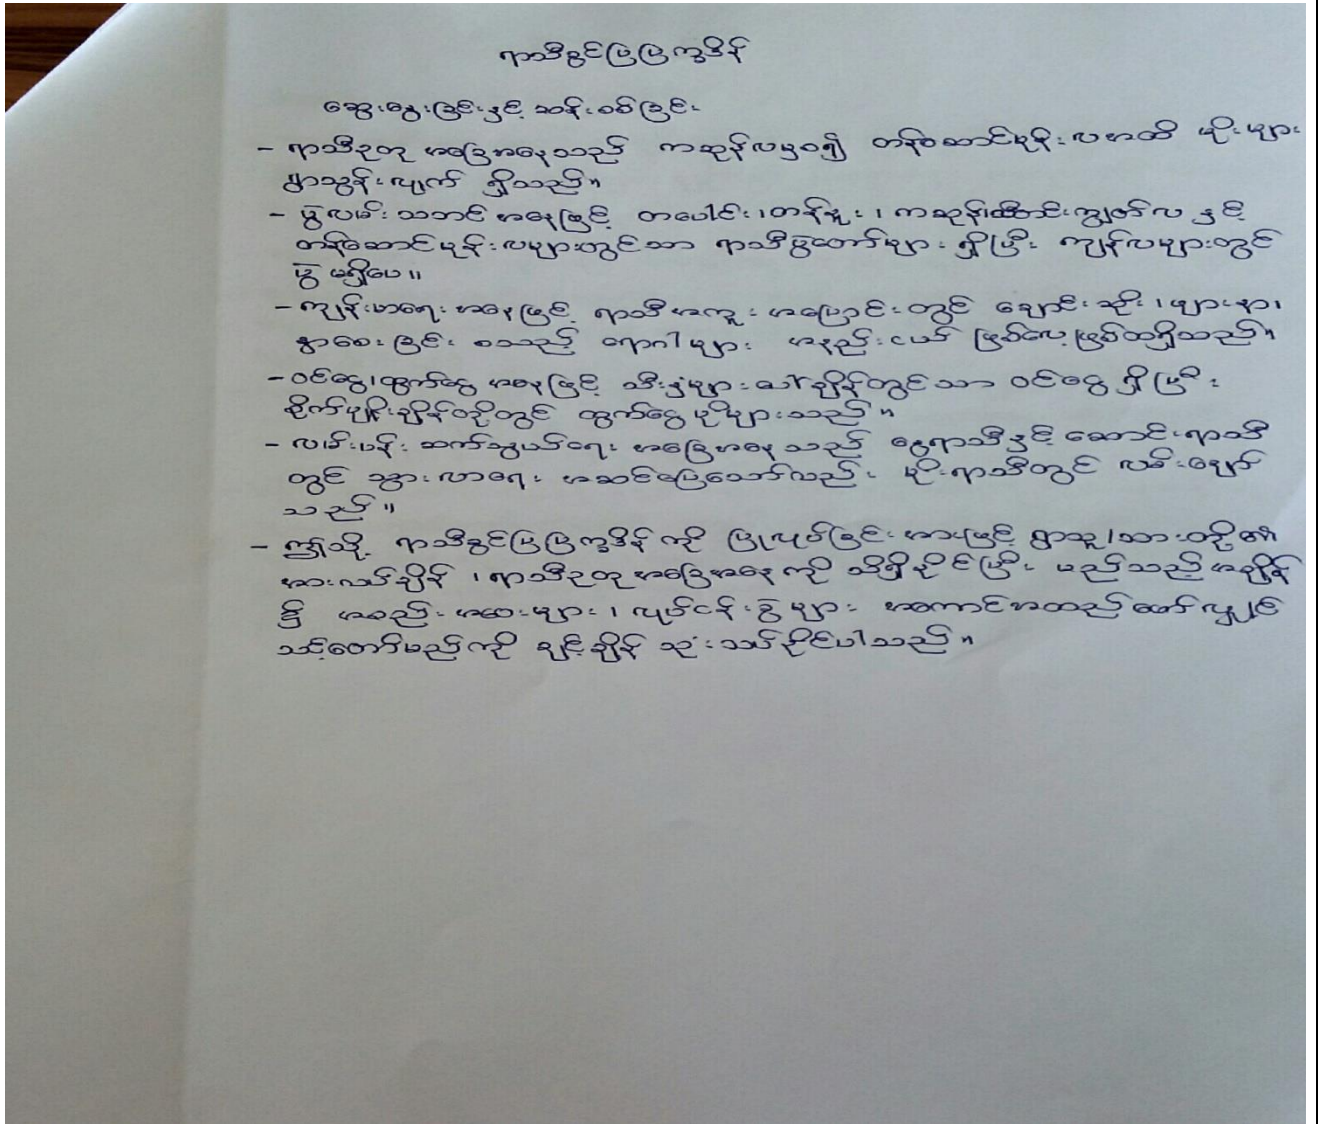 ရာသီခွင်ပြပြက္ခဒိန်
ဆွေးနွေးခြင်းနှင့် ဆန်းစစ်ခြင်း
- ရာသီဥတု အခြေအနေသည် ကဆုန်လမှစ၍ တန်ဆောင်မုန်းလအထိ မိုးများ
ရွာသွန်းလျက် ရှိသည်။
- ပွဲလမ်းသဘင်အနေဖြင့် တပေါင်း၊တန်ခူး၊ ကဆုန်၊သီတင်းကျွတ်လ နှင့်
တန်ဆောင်မုန်းလများတွင်သာ ရာသီပွဲတော်များ ရှိပြီး ကျန်လများတွင်
ပွဲ မရှိပေ။
- ကျန်းမာရေးအနေဖြင့် ရာသီအကူးအပြောင်းတွင် ချောင်းဆိုး၊ဖျားနာ၊
နှာစေးခြင်း စသည့် ရောဂါများ အနည်းငယ် ဖြစ်လေ့ဖြစ်ထရှိသည်။
- ဝင်ငွေ၊ထွက်ငွေ အနေဖြင့် သီးနှံများပေါ်ချိန်တွင်သာ ဝင်ငွေ ရှိပြီး
စိုက်ပျိုးချိန်တိုတွင် ထွက်ငွေ ပိုများသည်။
- လမ်းပန်းဆက်သွယ်ရေး အခြေအနေသည် နွေရာသီနှင့် ဆောင်းရာသီ
တွင် သွားလာရေး အဆင်ပြေသော်လည်း မိုးရာသီတွင် လမ်းချော်
သည်။
- ဤသို့ ရာသီခွင်ပြပြက္ခဒိန်ကို ပြုလုပ်ခြင်းအားဖြင့် ရွာသူ/သားတို့၏
အားလပ်ချိန် ၊ ရာသီဥတုအခြေအနေကို သိရှိနိုင်ပြီး မည်သည့်အချိန်
၌ အစည်းအဝေးများ၊ လုပ်ငန်းခွဲများ အကောင်အထည်ဖော်လျှင်
သင့်တော်မည်ကို ချင့်ချိန် သုံးသပ်နိုင်ပါသည်။